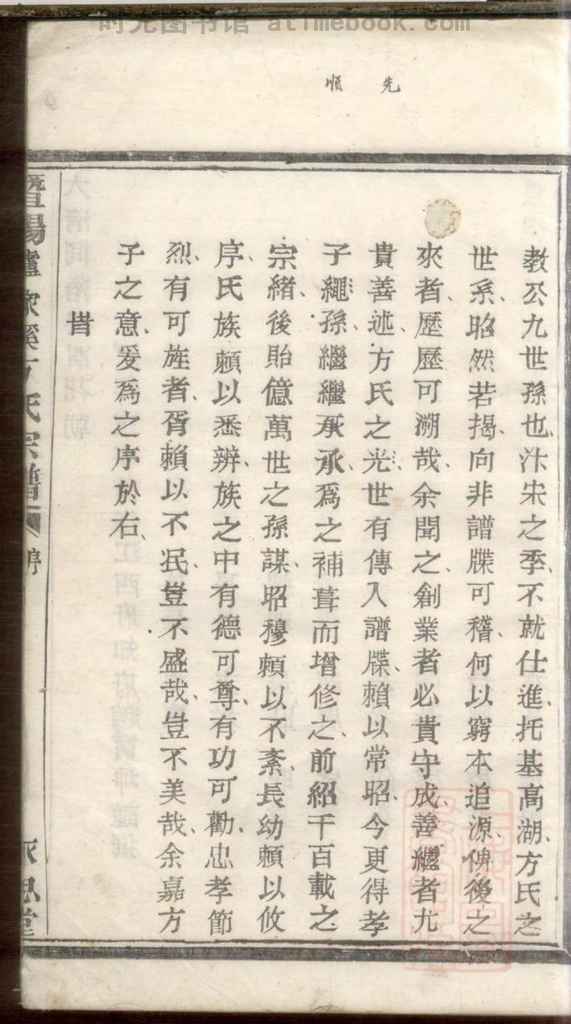 时光图书馆 atimebook.com
先順
教公九世孫也汴宋之季不就仕進托基高湖方氏之
世系昭然若揭向非譜牒可稽何以窮本追源俾後之
來者歷歷可溯哉余聞之創業者必貴守成善繼者尤
貴善述方氏之光世有傳人譜牒賴以常昭今更得孝
子繩孫繼繼承承爲之補葺而增修之前紹千百載之
宗緒後貽億萬世之孫謀昭穆賴以不紊長幼賴以攸
序氏族賴以悉辨族之中有德可尊有功可勸忠孝節
烈有可旌者胥賴以不泯豈不盛哉豈不美哉余嘉方
子之意爰爲之序於右
旹
暨陽 溪方氏宗譜 序
永思堂